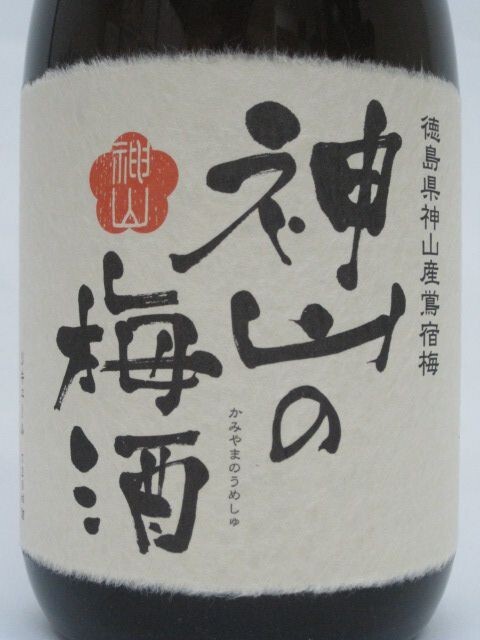 徳島県神山産鶯宿梅
神山の
かみやまのうめしゅ
梅酒
神山